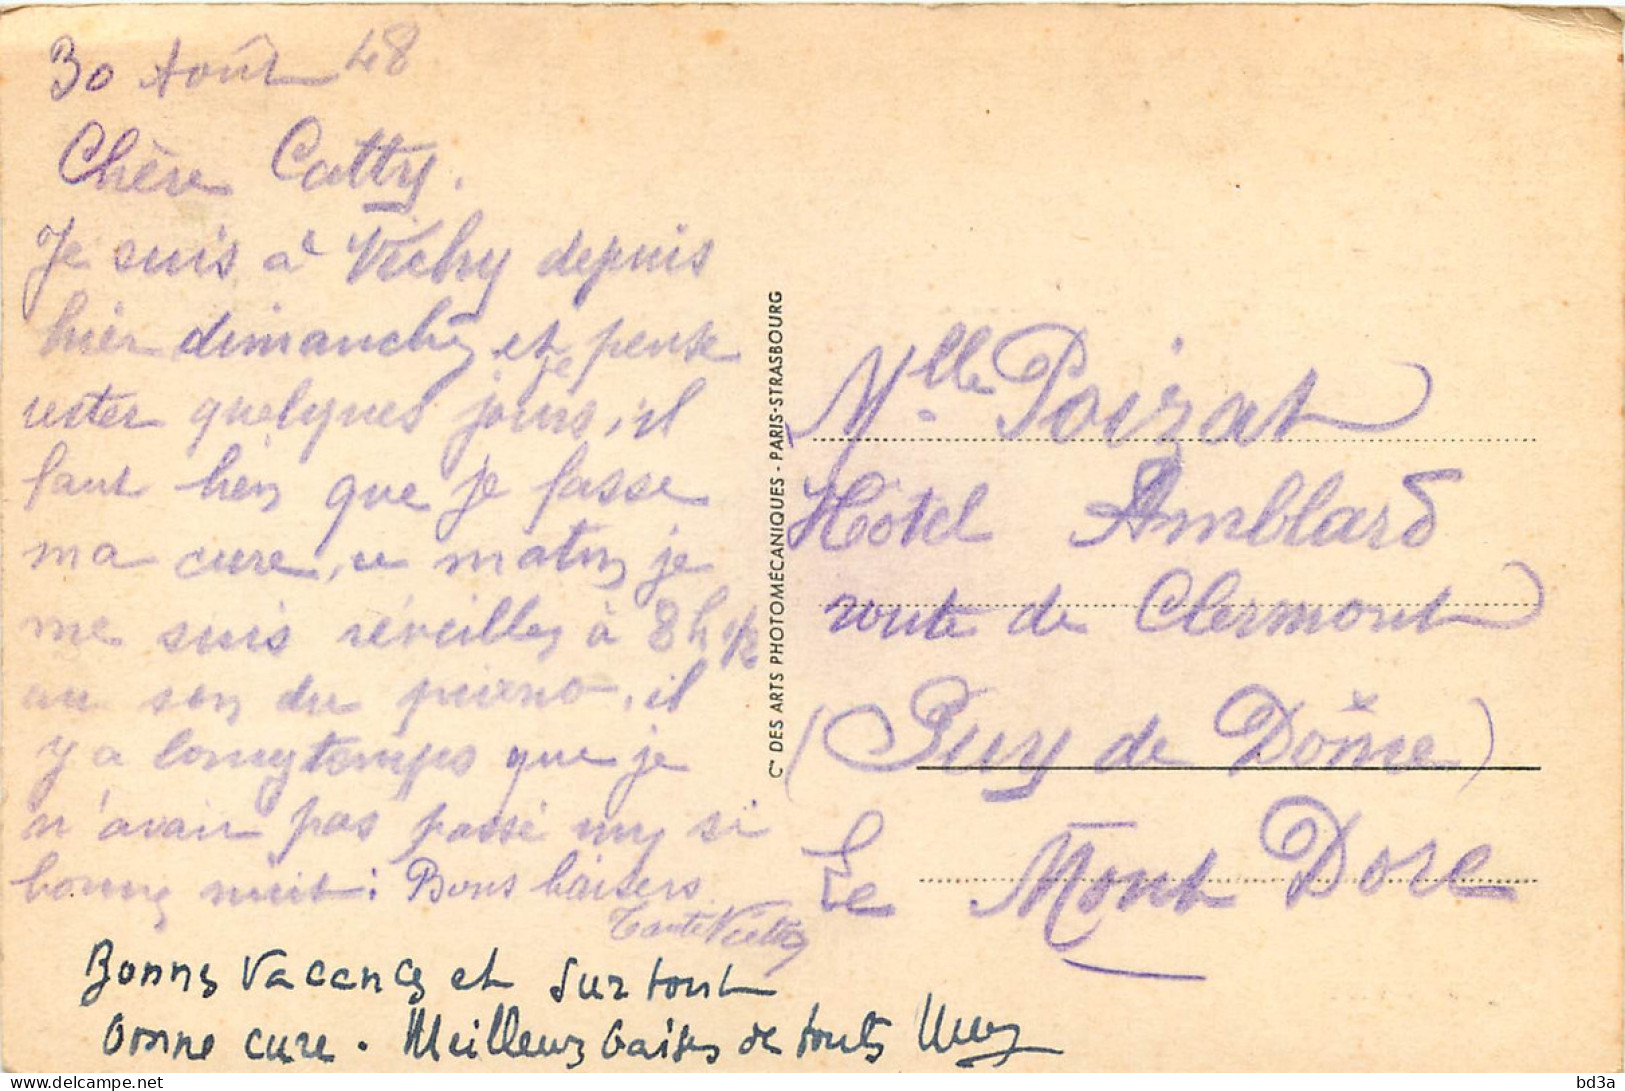 30 Août 48
Chère Catty.
Je suis à Vichy depuis
hier dimanche, et pense
je
rester quelques jours, il
faut bien que je fasse
ma cure, ce matin je
me suis réveillée à 8h 1/2
au son du piano, il
y a longtemps que je
n'avais pas passé une si
bonne nuit: Bons baisers
Tante
Bonnes vacances et surtout
bonne cure. Meilleurs baisers de toutes
Cie DES ARTS PHOTOMÉCANIQUES - PARIS-STRASBOURG
Mlle Poizat
Hôtel Amblard
route de Clermont
(Puy de Dôme)
Le Mont Dore
delcampe.net
bd3a